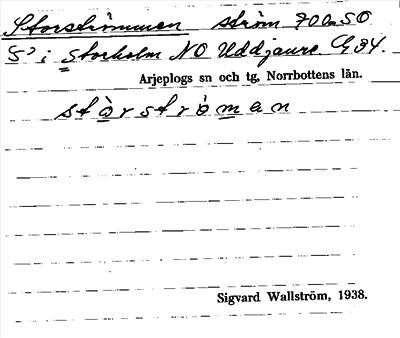 Storströmmen ström 700m SO
S³ i Storholm NO Uddjaure. G 34.
Arjeplogs sn och tg, Norrbottens län.
stòrstrò̀man
Sigvard Wallström, 1938.